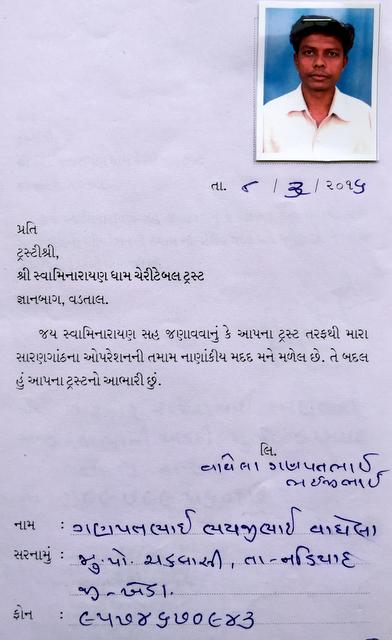 તા. ૮ / ૩ / ૨૦૧૬
પ્રતિ
ટ્રસ્ટીશ્રી,
શ્રી સ્વામિનારાયણ ધામ ચેરીટેબલ ટ્રસ્ટ
જ્ઞાનબાગ, વડતાલ.
જય સ્વામિનારાયણ સહ જણાવવાનું કે આપના ટ્રસ્ટ તરફથી મારા
સારણગાંઠના ઓપરેશનની તમામ નાણાંકીય મદદ મને મળેલ છે. તે બદલ
હું આપના ટ્રસ્ટનો આભારી છું.
લિ.
વાઘેલા ગણપતભાઈ
નામ : ગણપતભાઈ ભયજીભાઈ વાઘેલા
સરનામું : મુ.પો. ચકલાસી, તા-નડિયાદ
જી-ખેડા.
ફોન : ૯૫૭૪૬૭૦૯૪૩